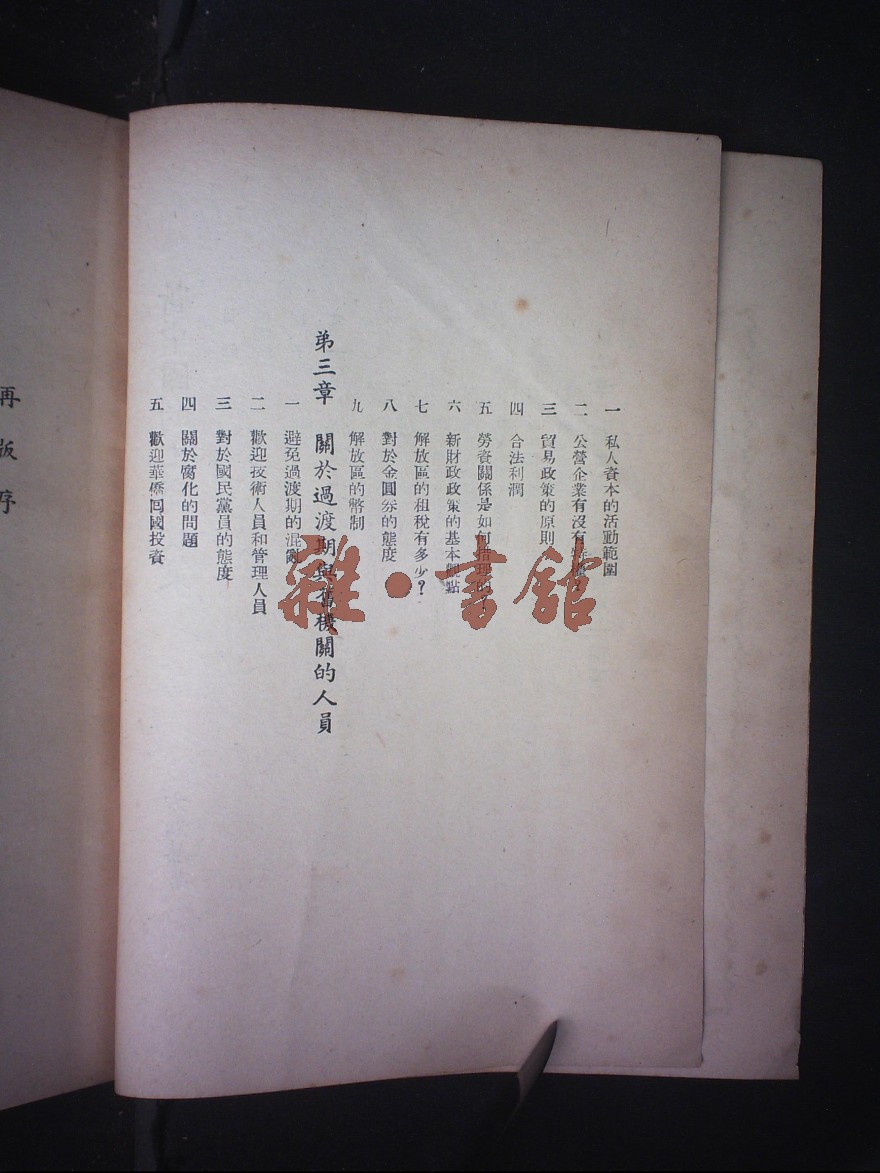 一 私人資本的活動範圍
二 公營企業有沒有
三 貿易政策的原則
四 合法利潤
五 勞資關係是如何
六 新財政政策的基本觀點
七 解放區的租稅有多少？
八 對於金圓券的態度
九 解放區的幣制
弟三章 關於過渡期與舊機關的人員
一 避免過渡期的混亂
二 歡迎技術人員和管理人員
三 對於國民黨員的態度
四 關於腐化的問題
五 歡迎華僑囘國投資
再版序
雜·書館